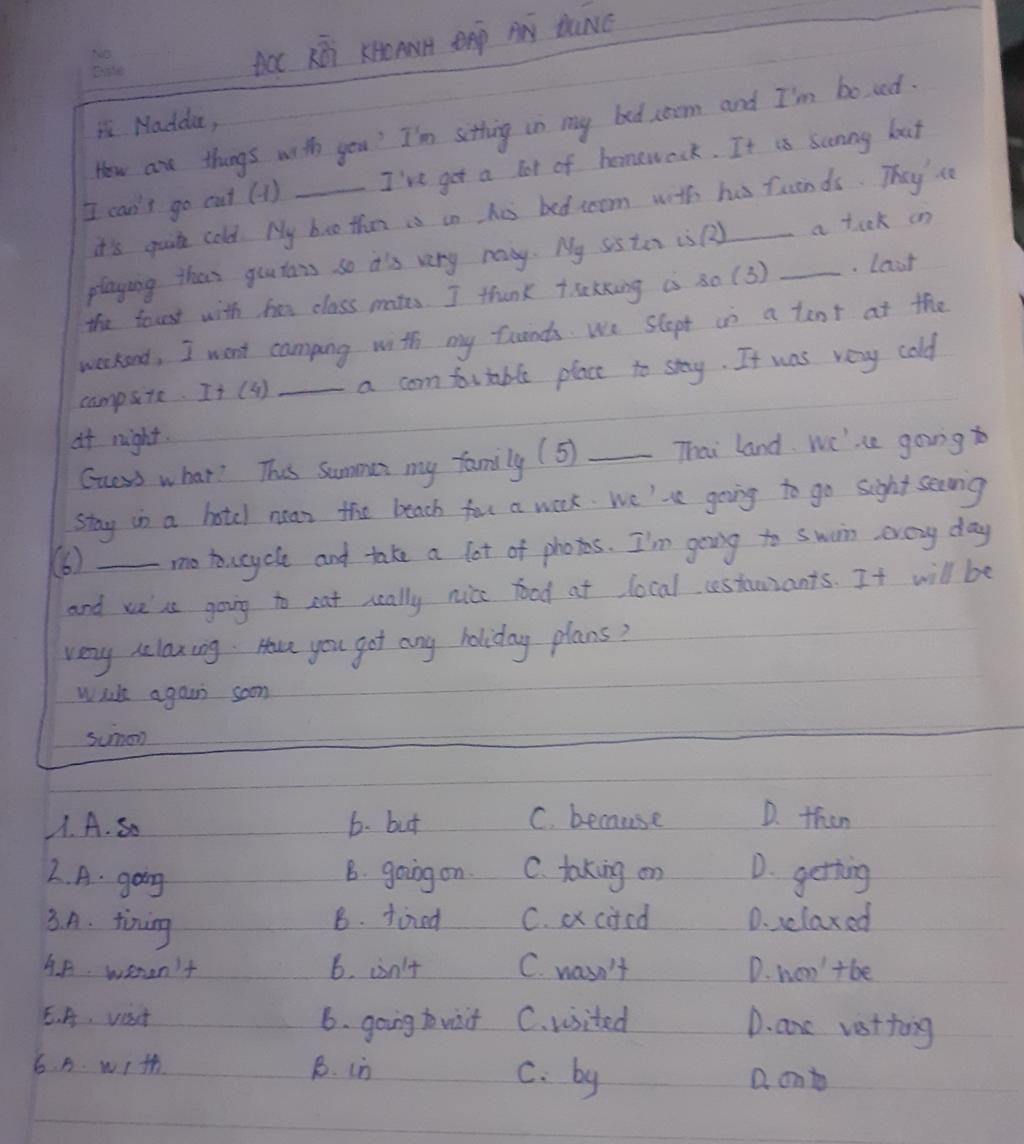 No
Date
ĐỌC RỒI KHOANH ĐÁP ÁN ĐÚNG
Hi Maddie,
How are things with you? I'm sitting in my bedroom and I'm bored.
I can't go out (1) ____ I've got a lot of homework. It is sunny but
it's quite cold. My brother is in his bedroom with his friends. They're
playing their guitars so it's very noisy. My sister is (2) ____ a trek in
the forest with her class mates. I think trekking is so (3) ____. Last
weekend, I went camping with my friends. We slept in a tent at the
campsite. It (4) ____ a comfortable place to stay. It was very cold
at night.
Guess what? This summer my family (5) ____ Thai land. We're going to
stay in a hotel near the beach for a week. We're going to go sight seeing
(6) ____ motorcycle and take a lot of photos. I'm going to swim every day
and we're going to eat really nice food at local restaurants. It will be
very relaxing. Have you got any holiday plans?
Write again soon
Simon
1. A. so B. but C. because D. then
2. A. going B. going on C. taking on D. getting
3. A. tiring B. tired C. excited D. relaxed
4. A. weren't B. isn't C. wasn't D. won't be
5. A. visit B. going to visit C. visited D. are visiting
6. A. with B. in C. by D. onto